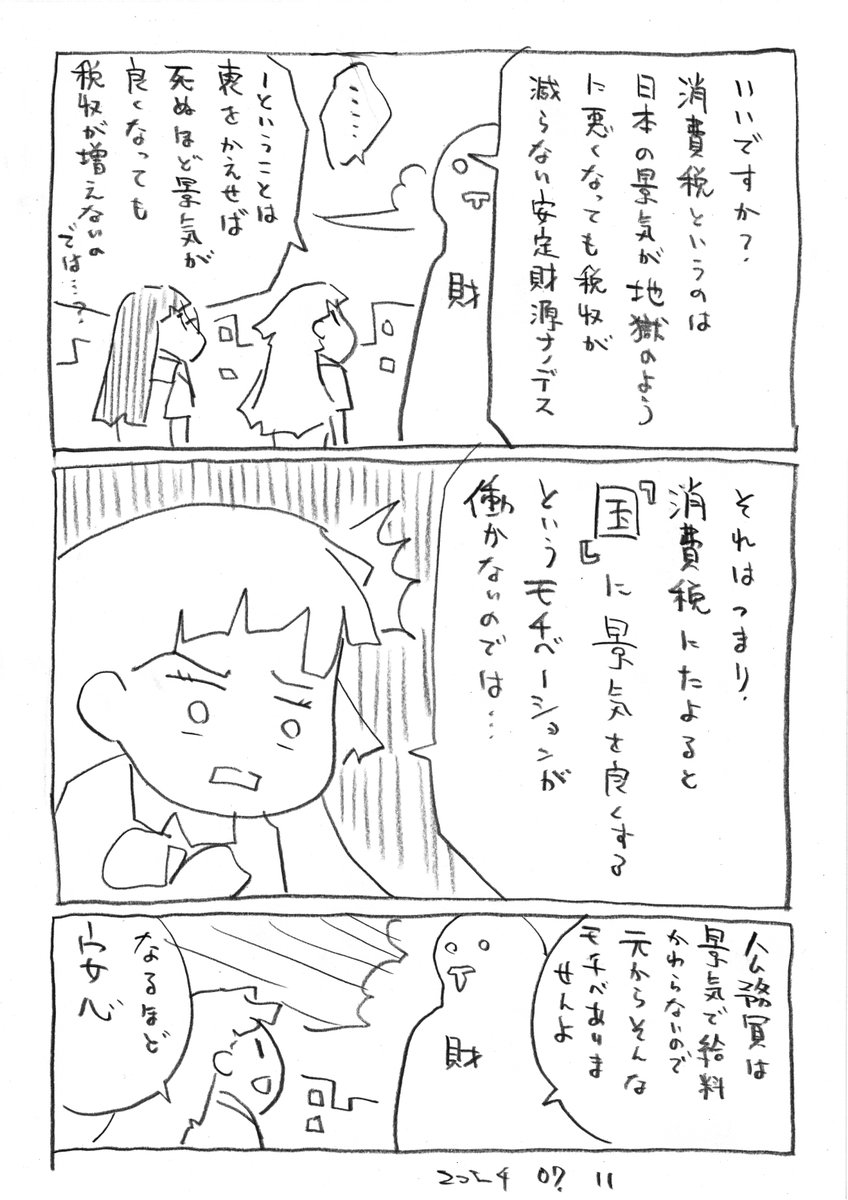 いいですか?
消費税というのは
日本の景気が地獄のよう
に悪くなっても税収が
減らない安定財源ナノデス
財
……
ーということは
裏をかえせば
死ぬほど景気が
良くなっても
税収が増えないの
では…?
それはつまり、
消費税にたよると
『国』に景気を良くする
というモチベーションが
働かないのでは…
公務員は
景気で給料
かわらないので
元からそんな
モチベありま
せんよ
財
なるほど
07 11